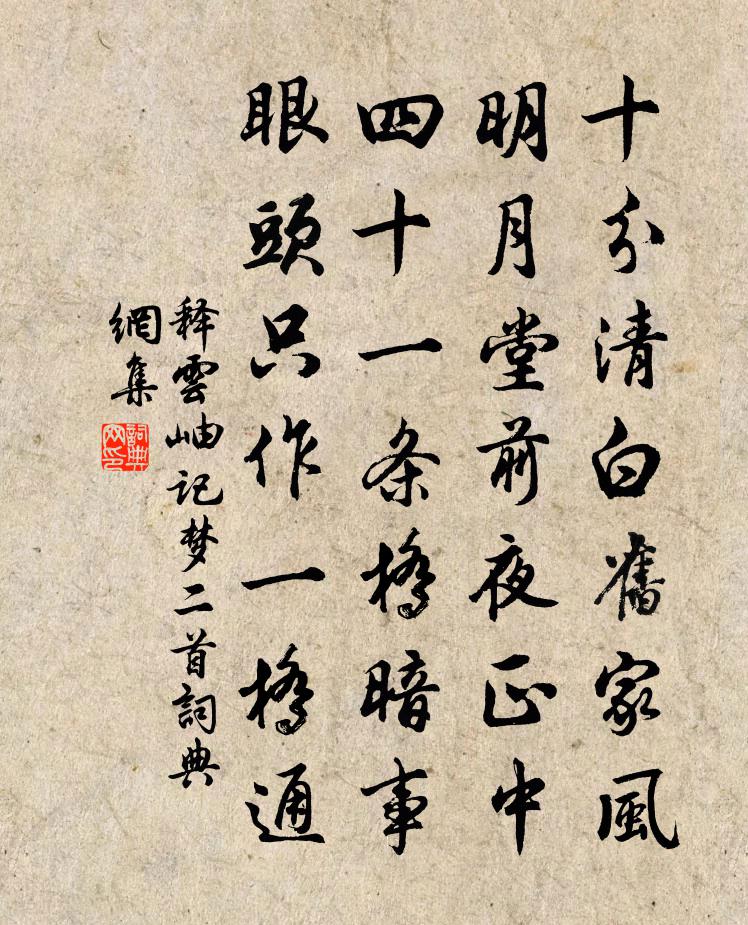 十分清白舊家風
明月堂前夜正中
四十一条橋暗事
眼頭只作一橋通
释雲岫记梦二首詞典
網集
詞典
网印